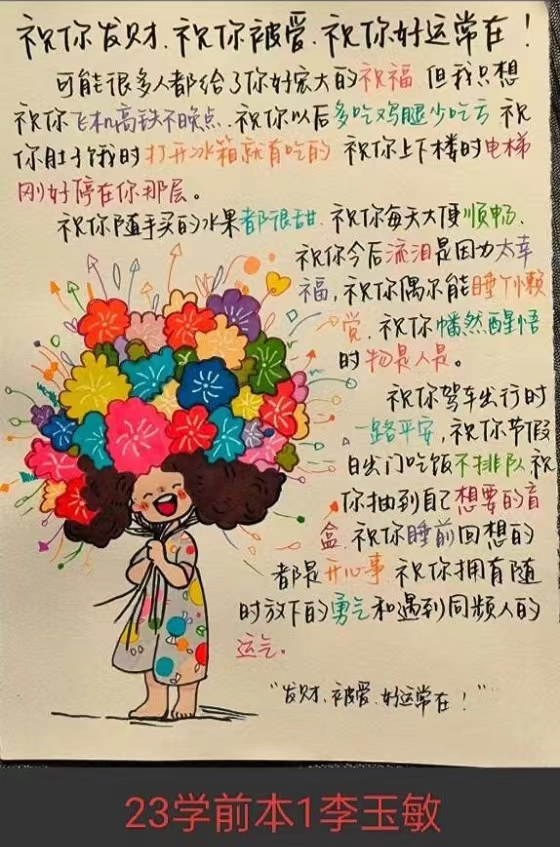 祝你发财、祝你被爱、祝你好运常在！
可能很多人都给了你好宏大的祝福 但我只想
祝你飞机高铁不晚点、祝你以后多吃鸡腿少吃亏 祝
你肚子饿时打开冰箱就有吃的 祝你上下楼时电梯
刚好停在你那层。
祝你随手买的水果都很甜、祝你每天大便顺畅、
祝你今后流泪是因为太幸
福，祝你偶尔能睡个懒
觉、祝你幡然醒悟
时物是人是。
祝你驾车出行时
一路平安，祝你节假
日出门吃饭不排队 祝
你抽到自己想要的盲
盒、祝你睡前回想的
都是开心事 祝你拥有随
时放下的勇气和遇到同频人的
运气。
“发财、被爱、好运常在！”
23学前本1李玉敏